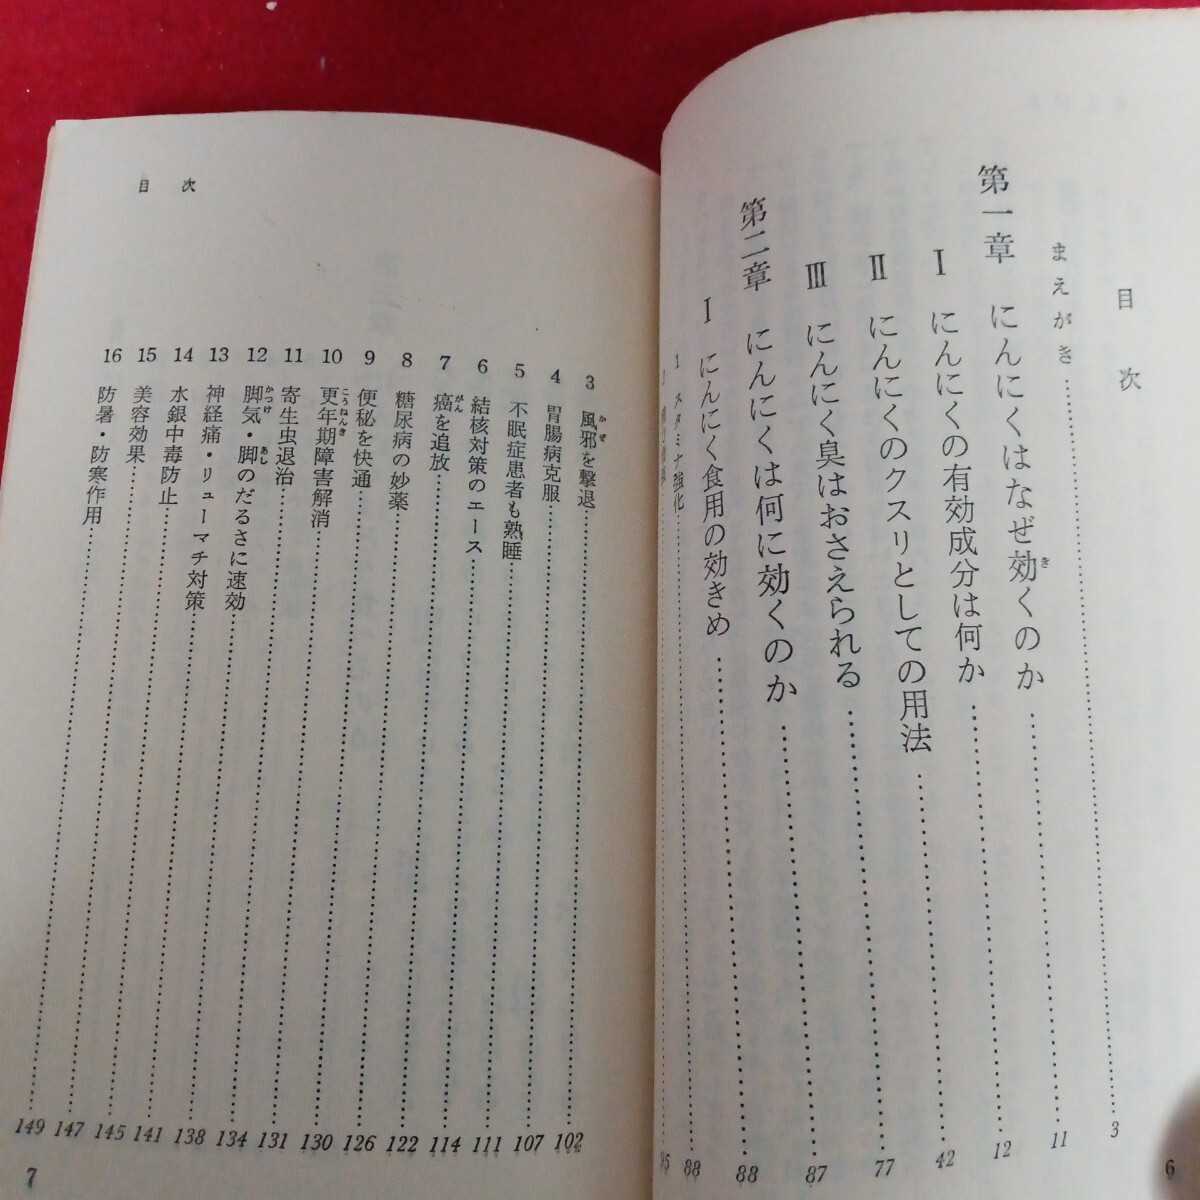 目次
まえがき……3
第一章 にんにくはなぜ効くのか……11
Ⅰ にんにくの有効成分は何か……12
Ⅱ にんにくのクスリとしての用法……42
Ⅲ にんにく臭はおさえられる……77
第二章 にんにくは何に効くのか……87
Ⅰ にんにく食用の効きめ……88
1 スタミナ強化……88
2 ……95
6
目次
3 風邪を撃退……102
4 胃腸病克服……107
5 不眠症患者も熟睡……111
6 結核対策のエース……114
7 癌を追放……122
8 糖尿病の妙薬……126
9 便秘を快通……130
10 更年期障害解消……131
11 寄生虫退治……134
12 脚気・脚のだるさに速効……138
13 神経痛・リューマチ対策……141
14 水銀中毒防止……145
15 美容効果……147
16 防暑・防寒作用……149
7